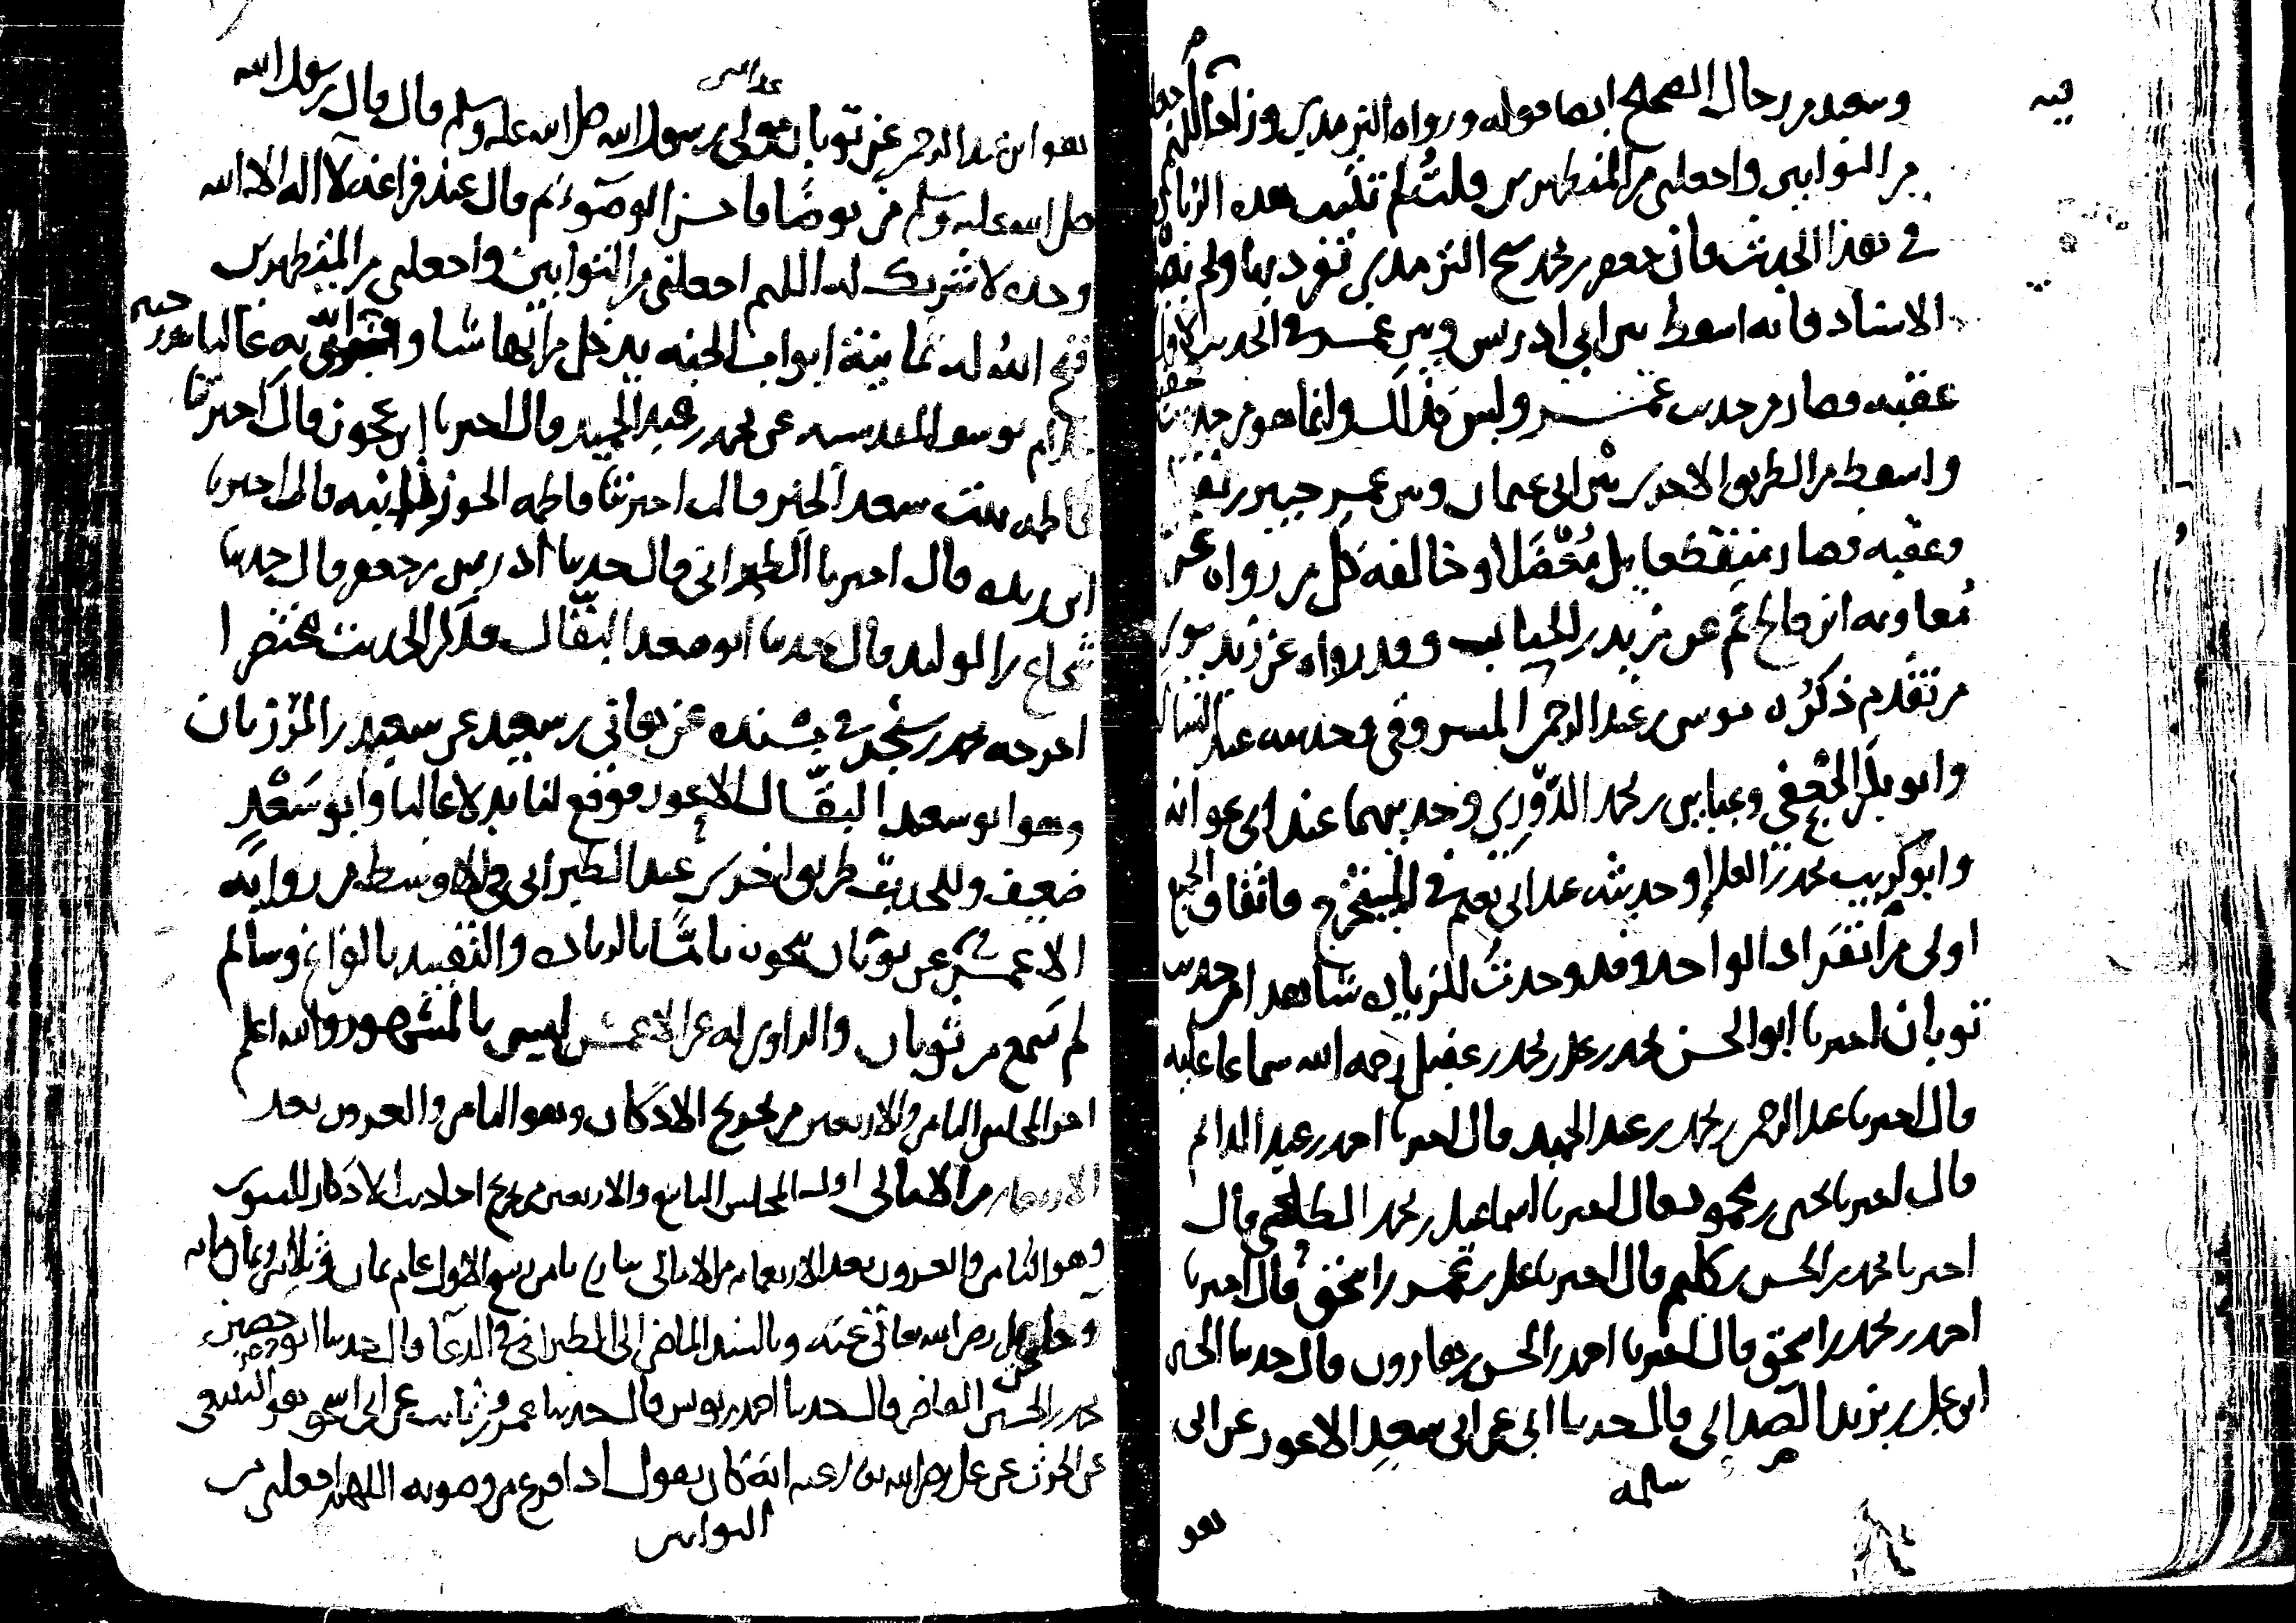 وسعيد من رجال الصحيح ايضا قوله ورواه الترمذي وزاد اللهم اجعلني
من التوابين واجعلني من المتطهرين قلت لم تثبت هذه الزيادة
في هذا الحديث فان جعفر بن محمد شيخ الترمذي تفرد بها ولم يضبط
الاسناد فانه اسقط بين ابي ادريس وبين عمر في الحديث الاول
عقبه فصار من حديث عمر وليس كذلك وانما هو من حديث عقبه
واسقط من الطريق الاخرى بين ابي عثمان وبين عمر جبير بن نفير
وعقبه فصار منقطعا بل معضلا وخالفه كل من رواه عن
معاويه بن صالح ثم عن زيد بن الحباب وقد رواه عن زيد سوى
من تقدم ذكره موسى بن عبد الرحمن المسروقي وحديثه عند النسائي
وابو بكر الجعفي وعباس بن محمد الدوري وحديثهما عند ابي عوانه
وابو كريب محمد بن العلا وحديثه عند ابي نعيم في المستخرج فاتفاق الجميع
اولى من انفراد الواحد وقد وجدت للزياده شاهدا من حديث
ثوبان اخبرنا ابو الحسن محمد بن علي بن محمد بن عقيل رحمه الله سماعا عليه
قال اخبرنا عبد الرحمن بن محمد بن عبد الحميد قال اخبرنا احمد بن عبد الدائم
قال اخبرنا يحيى بن محمود قال اخبرنا اسماعيل بن محمد الطلحي قال
اخبرنا محمد بن الحسن بن سليم قال اخبرنا علي بن عمر بن اسحق قال اخبرنا
احمد بن محمد بن اسحق قال اخبرنا احمد بن الحسن بن هارون قال حدثنا الحسين
ابن علي بن يزيد الصدائي قال حدثنا ابي عن ابي سعد الاعور عن ابي
سلمه
هو
هو ابن عبد الرحمن عن ثوبان مولى رسول الله صلى الله عليه وسلم قال قال رسول الله
صلى الله عليه وسلم من توضا فاحسن الوضوء ثم قال عند فراغه لا اله الا الله
وحده لا شريك له اللهم اجعلني من التوابين واجعلني من المتطهرين
فتح الله له ثمانية ابواب الجنه يدخل من ايها شا
يوسف المقدسيه عن محمد بن عبد الحميد قال اخبرنا ابن عجون قال اخبرتنا
فاطمه بنت سعد الخير قالت اخبرتنا فاطمه الجوزدانيه قالت اخبرنا
ابن ريذه قال اخبرنا الطبراني قال حدثنا ادريس بن جعفر قال حدثنا
شجاع بن الوليد قال حدثنا ابو سعد البقال فذكر الحديث مختصرا
اخرجه محمد بن سنجر في مسنده عن هاني بن سعيد عن سعيد بن المرزبان
وهو ابو سعد البقال الاعور فوقع لنا بدلا عاليا وابو سعد
ضعيف وللحديث طريق اخرى عند الطبراني في الاوسط من رواية
الاعمش عن ثوبان نحوه تاما بالزياده والتقييد بالفراغ وسالم
لم يسمع من ثوبان والراوي له عن الاعمش ليس بالمشهور والله اعلم
اخر المجلس الثامن والاربعين من تخريج الاذكار وهو الثامن والعشرون بعد
الاربعمايه من الامالي اول المجلس التاسع والاربعين من تخريج احاديث الاذكار للنووي
وبالسند الماضي الى الطبراني في الدعا قال حدثنا ابو حصين
محمد بن الحسين القاضي قال حدثنا احمد بن يونس قال حدثنا عمرو بن ثابت عن ابي اسحق هو السبيعي
عن الحرث عن علي رضي الله تعالى عنه انه كان يقول اذا فرغ من وضوئه اللهم اجعلني من
التوابين